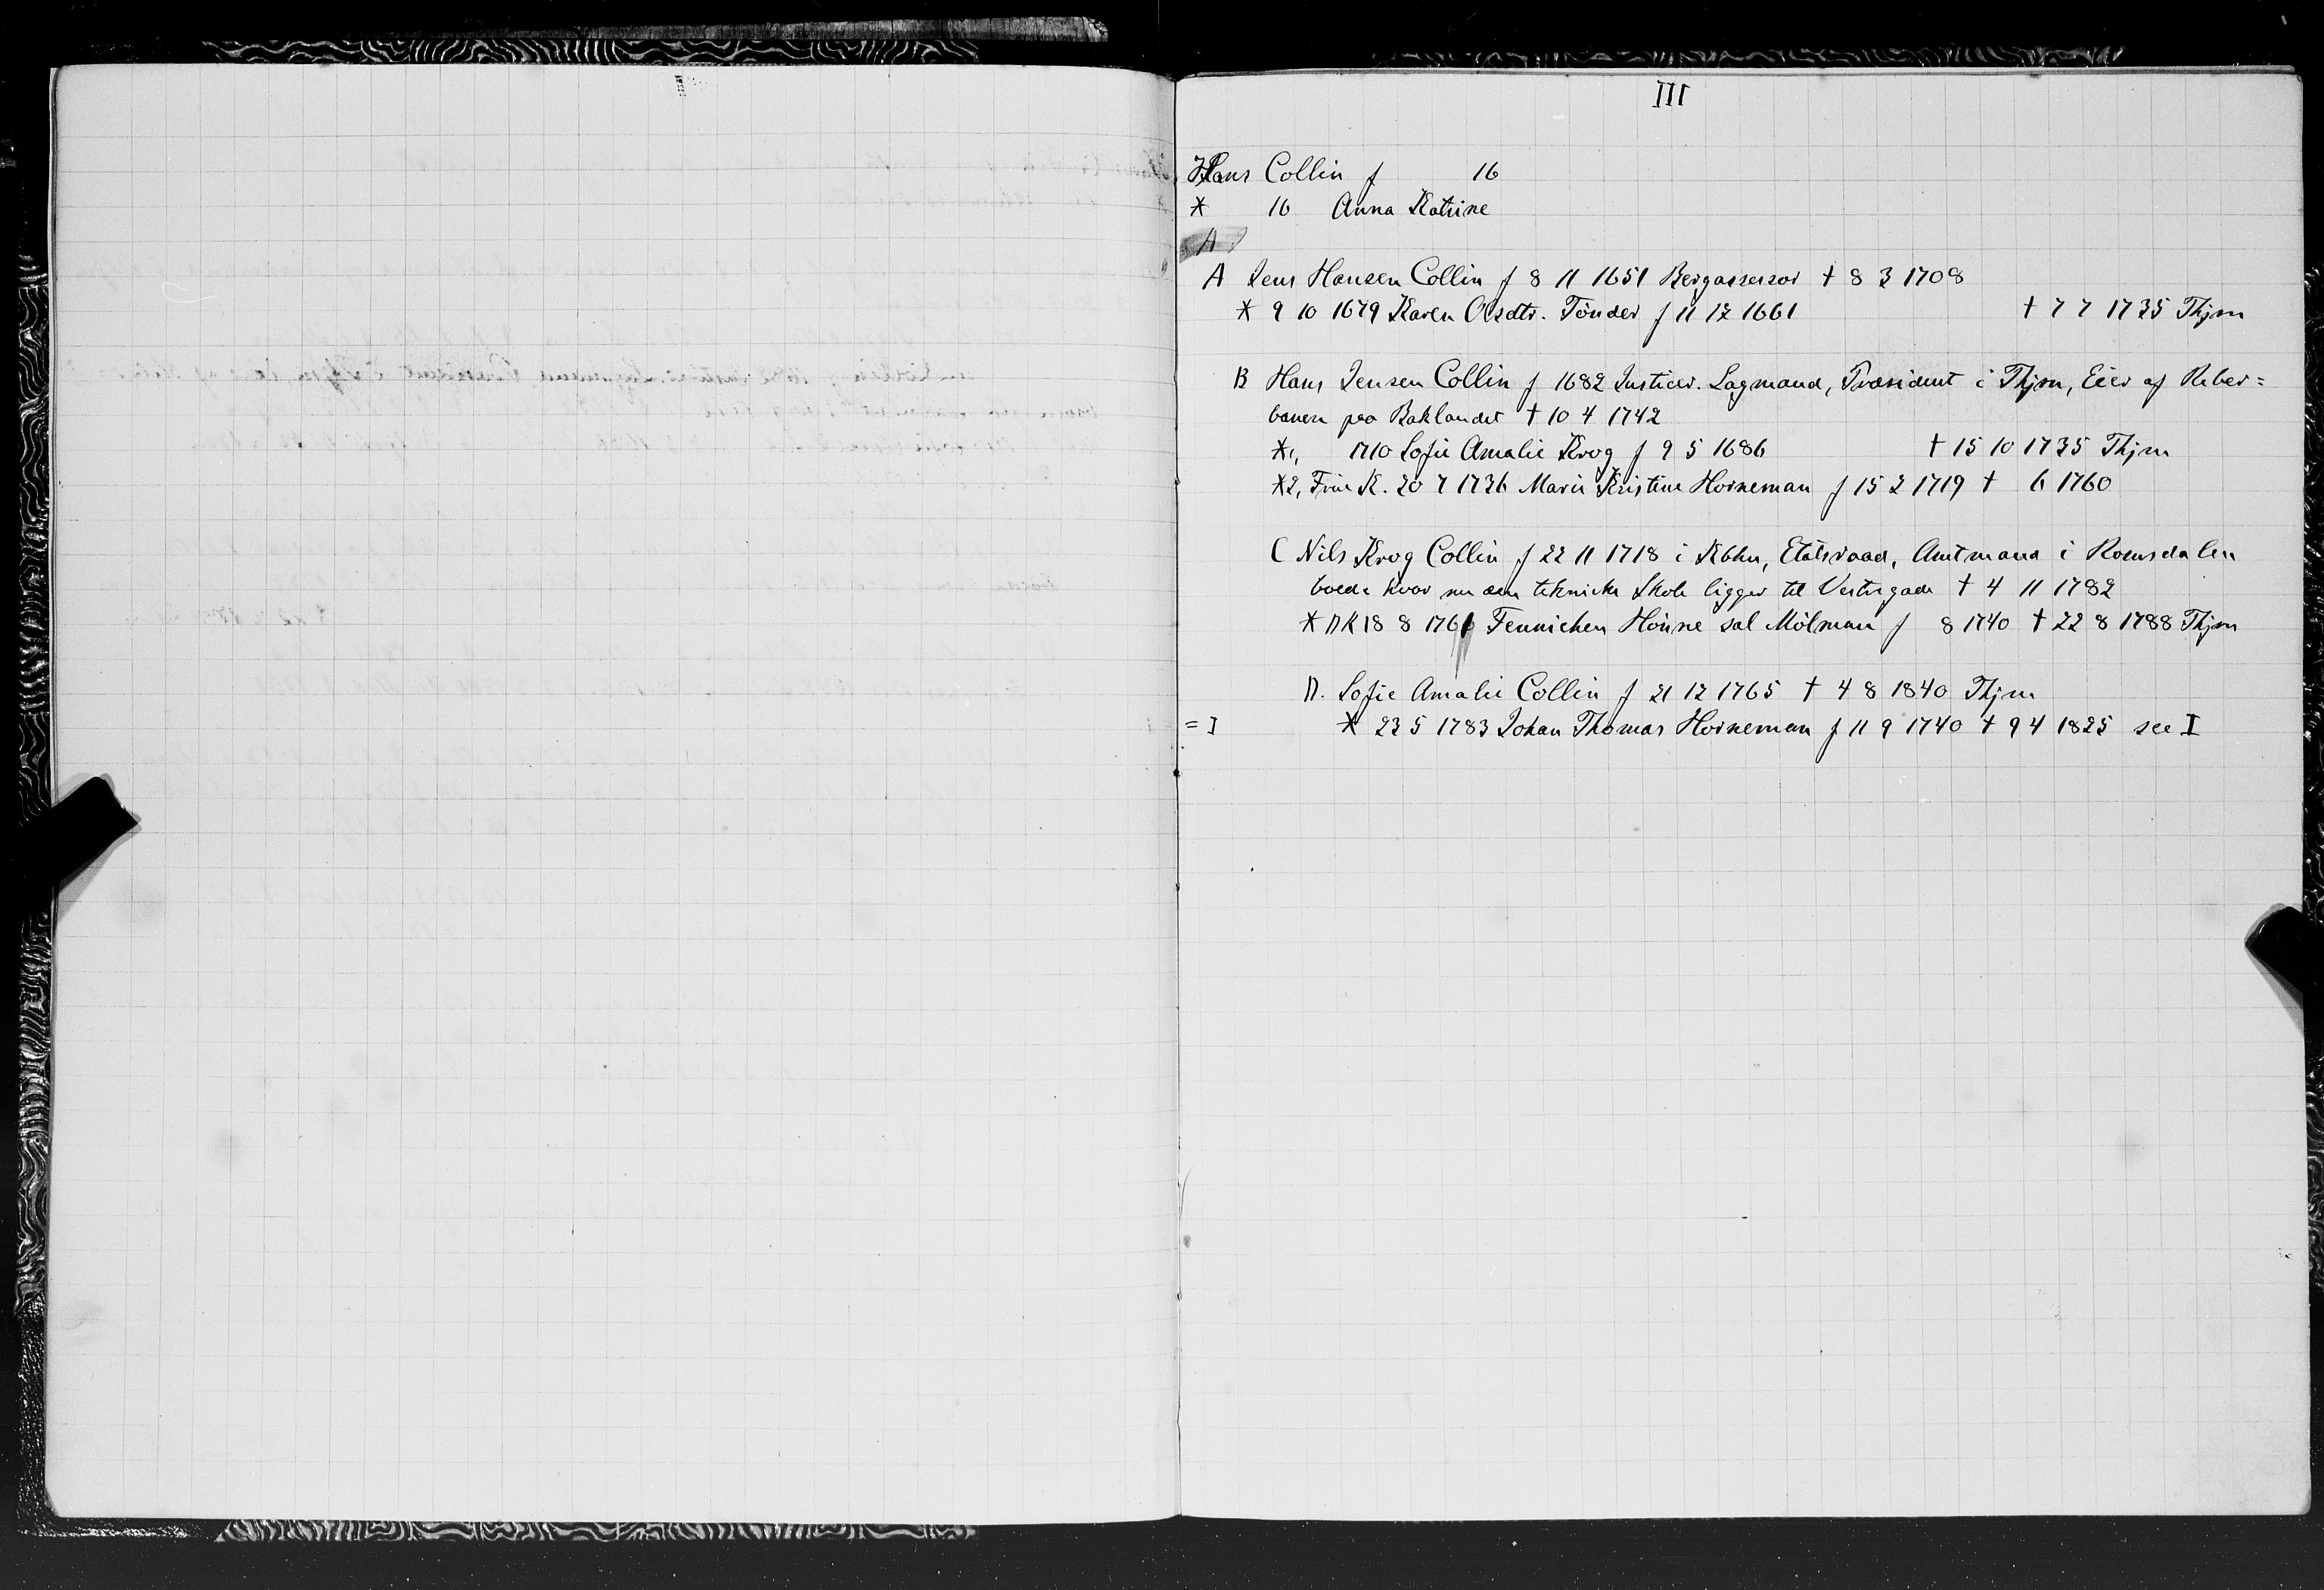 III
Hans Collin f 16
* 16 Anna Katrine
A
A Jens Hansen Collin f 8 11 1651 Bergassessor † 8 3 1708
* 9 10 1679 Karen Olsdtr. Tönder f 11 12 1661 † 7 7 1735 Thjm
B Hans Jensen Collin f 1682 Justicer. Lagmand, Præsident i Thjm, Eier af Reber=
banen paa Baklandet † 10 4 1742
*1, 1710 Sofie Amalie Krog f 9 5 1686 † 15 10 1735 Thjm
*2, Frue K. 20 7 1736 Marie Kristine Horneman f 15 2 1719 † 6 1760
C Nils Krog Collin f 22 11 1718 i Kbhn, Etatsraad, Amtmand i Romsdalen
boede hvor nu den tekniske Skole ligger til Vestregade † 4 11 1782
* DK 18 8 1761 Fennichen Hönne sal Mölman f 8 1740 † 22 8 1788 Thjm
D. Sofie Amalie Collin f 21 12 1765 † 4 8 1840 Thjm
= I * 23 5 1783 Johan Thomas Horneman f 11 9 1740 † 9 4 1825 see I